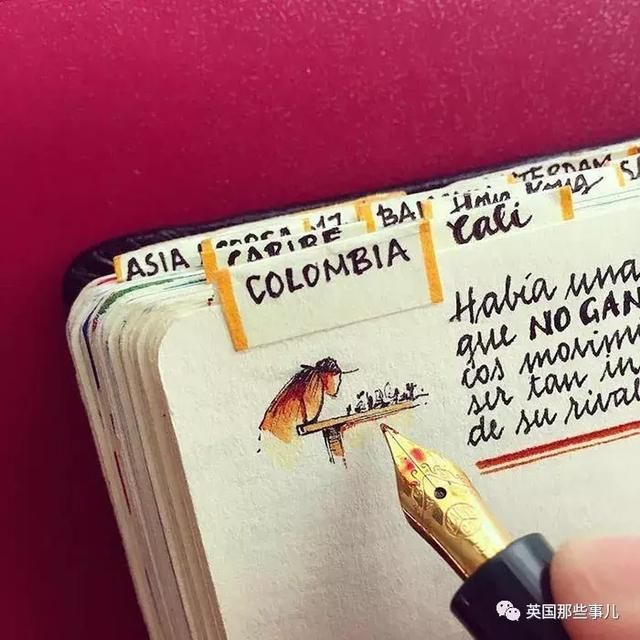 ASIA
CARIBE
BA
Hong Kong
COLOMBIA
Cali
Había una
que NO GAN
cos movim
ser tan in
de su rival
英国那些事儿